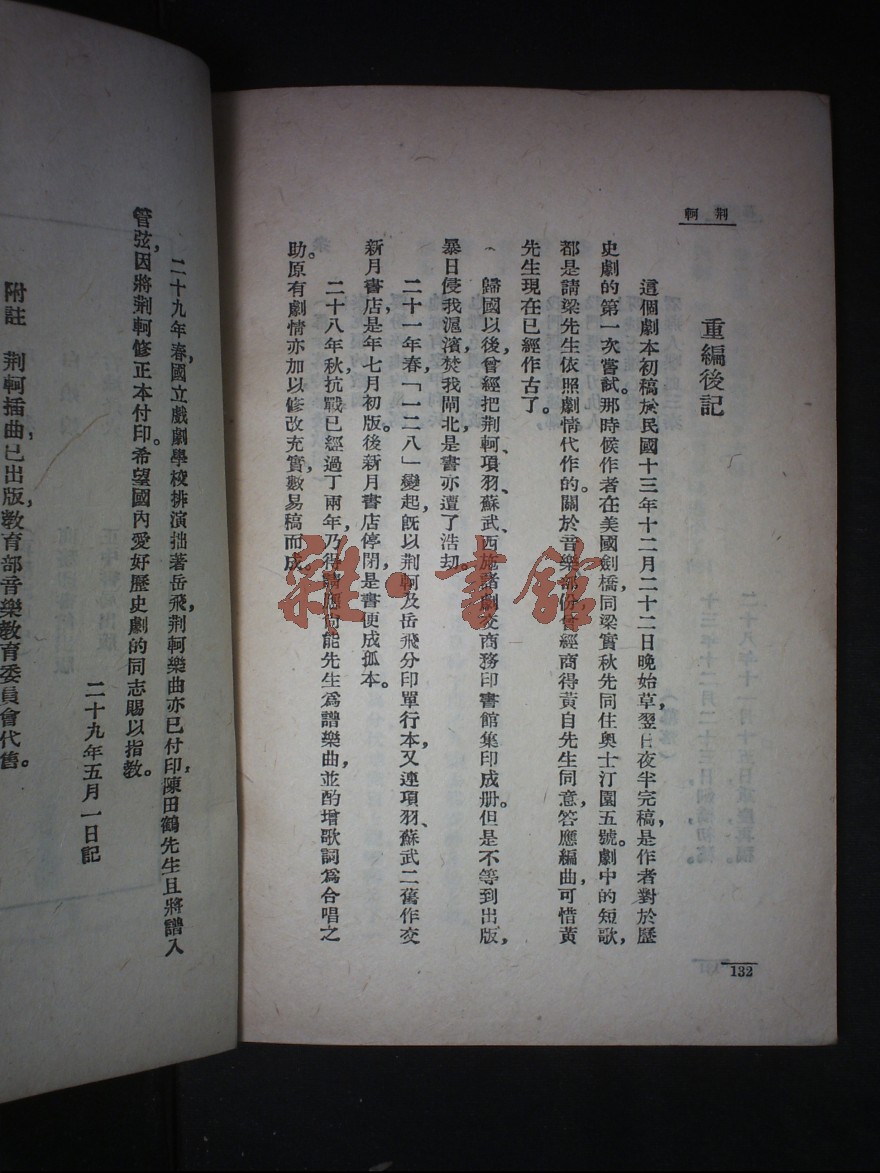 荆軻
重編後記
這個劇本初稿於民國十三年十二月二十二日晚始草，翌日夜半完稿，是作者對於歷
史劇的第一次嘗試。那時候作者在美國劍橋同梁實秋先同住奧士汀園五號。劇中的短歌，
都是請梁先生依照劇情代作的。關於音樂部份曾經商得黃自先生同意，答應編曲，可惜黃
先生現在已經作古了。
歸國以後曾經把荆軻、項羽、蘇武、西施諸劇交商務印書館集印成册。但是不等到出版，
暴日侵我滬濱，焚我閘北，是書亦遭了浩劫。
二十一年春，「一二八」變起，旣以荆軻及岳飛分印單行本，又連項羽、蘇武二舊作交
新月書店，是年七月初版。後新月書店停閉，是書便成孤本。
二十八年秋，抗戰已經過了兩年，乃得請 向能先生爲譜樂曲，並酌增歌詞爲合唱之
助。原有劇情亦加以修改充實，數易稿而成。
132
二十九年春，國立戲劇學校排演拙著岳飛，荆軻樂曲亦已付印，陳田鶴先生且將譜入
管弦，因將荆軻修正本付印，希望國內愛好歷史劇的同志賜以指教。
二十九年五月一日記
附註 荆軻插曲已出版，教育部音樂教育委員會代售。
雜·書館